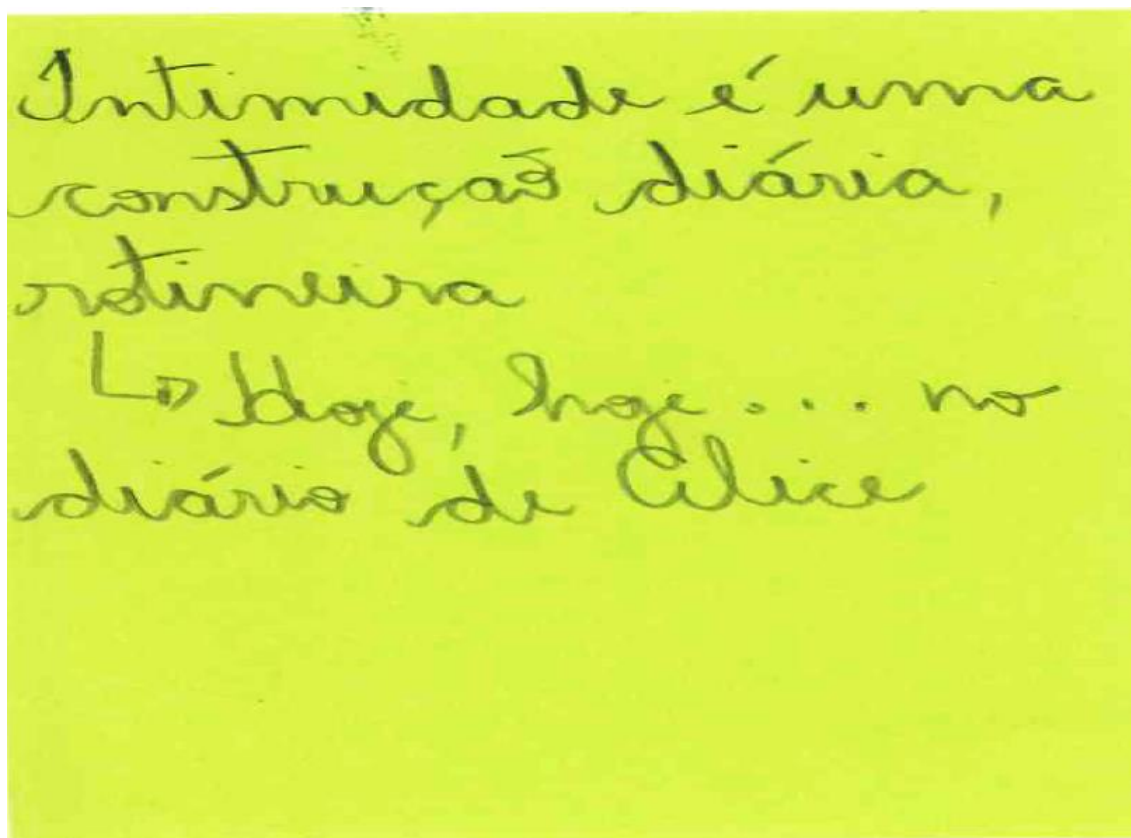 Intimidade é uma
construção diária,
rotineira
↳ Hoje, hoje... no
diário de Alice